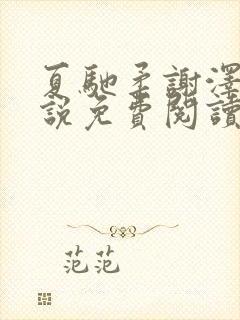 夏馳柔謝澤
說免費閱讀
范范